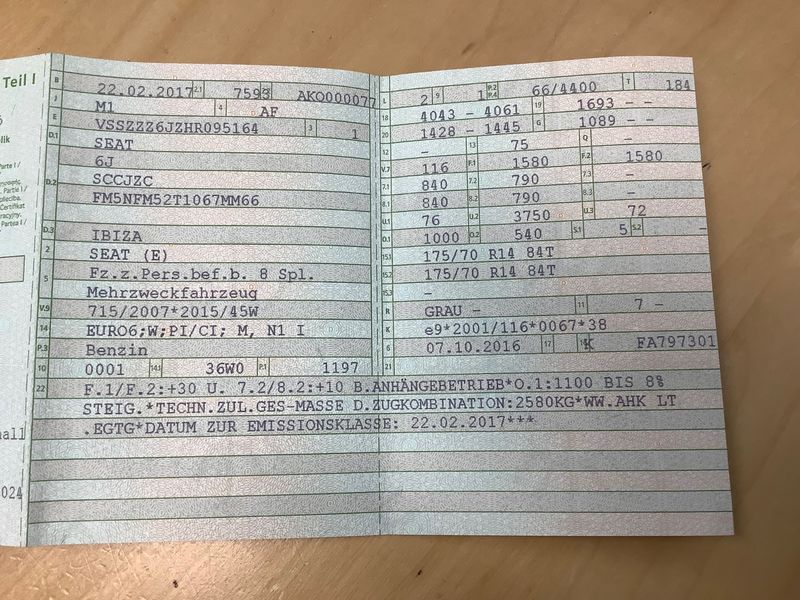 Teil I
B 22.02.2017 2.1 7593 AKO000077
J M1 4 AF
E VSSZZZ6JZHR095164 3 1
D.1 SEAT
6J
D.2 SCCJZC
FM5NFM52T1067MM66
D.3 IBIZA
2 SEAT (E)
5 Fz.z.Pers.bef.b. 8 Spl.
Mehrzweckfahrzeug
V.9 715/2007*2015/45W
14 EURO6;W;PI/CI; M, N1 I
P.3 Benzin
10 0001 14.1 36W0 P.1 1197
L 2 9 1 P.2 P.4 66/4400 T 184
18 4043 - 4061 19 1693 - -
20 1428 - 1445 G 1089 - -
12 - 13 75 Q -
V.7 116 F.1 1580 F.2 1580
7.1 840 7.2 790 7.3 -
8.1 840 8.2 790 8.3 -
U.1 76 U.2 3750 U.3 72
O.1 1000 O.2 540 S.1 5 S.2 -
15.1 175/70 R14 84T
15.2 175/70 R14 84T
15.3 -
R GRAU - 11 7 -
K e9*2001/116*0067*38
6 07.10.2016 17 K 16 FA797301
21
22 F.1/F.2:+30 U. 7.2/8.2:+10 B.ANHÄNGEBETRIEB*O.1:1100 BIS 8%
STEIG.*TECHN.ZUL.GES-MASSE D.ZUGKOMBINATION:2580KG*WW.AHK LT
.EGTG*DATUM ZUR EMISSIONSKLASSE: 22.02.2017***